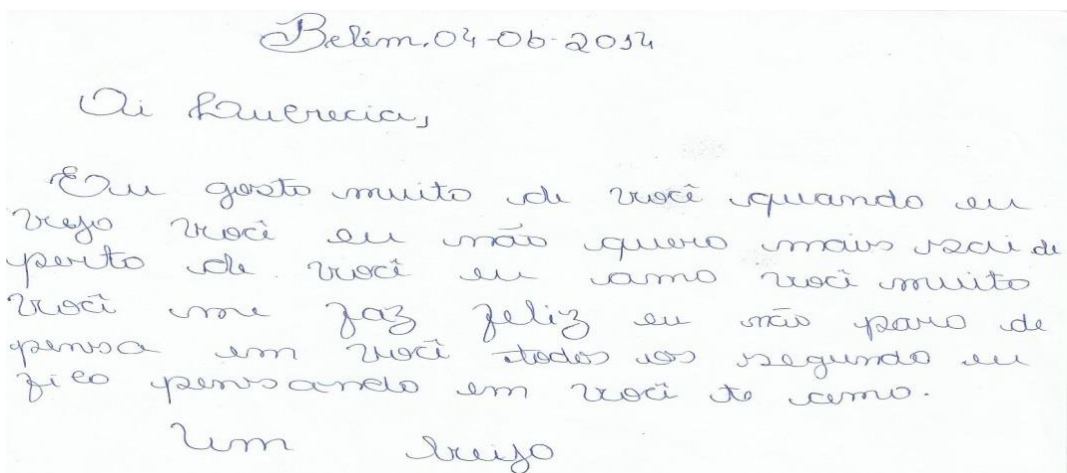 Belém, 04-06-2014
Oi Lucrecia,
Eu gosto muito de você quando eu
vejo você eu não quero mais sai de
perto de você eu amo você muito
você me faz feliz eu não paro de
pensa em você todos os segundo eu
fico pensando em você te amo.
Um beijo